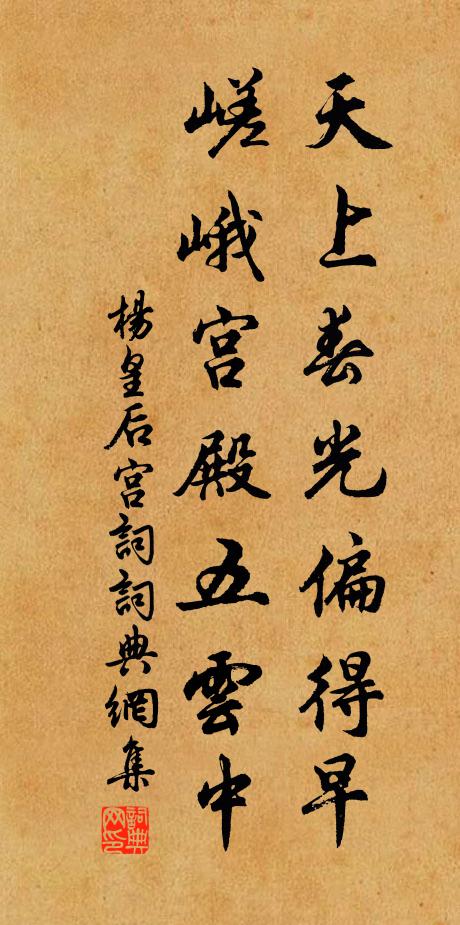 天上春光偏得早
嵯峨宫殿五雲中
楊皇后宫詞詞典網集
詞典网印